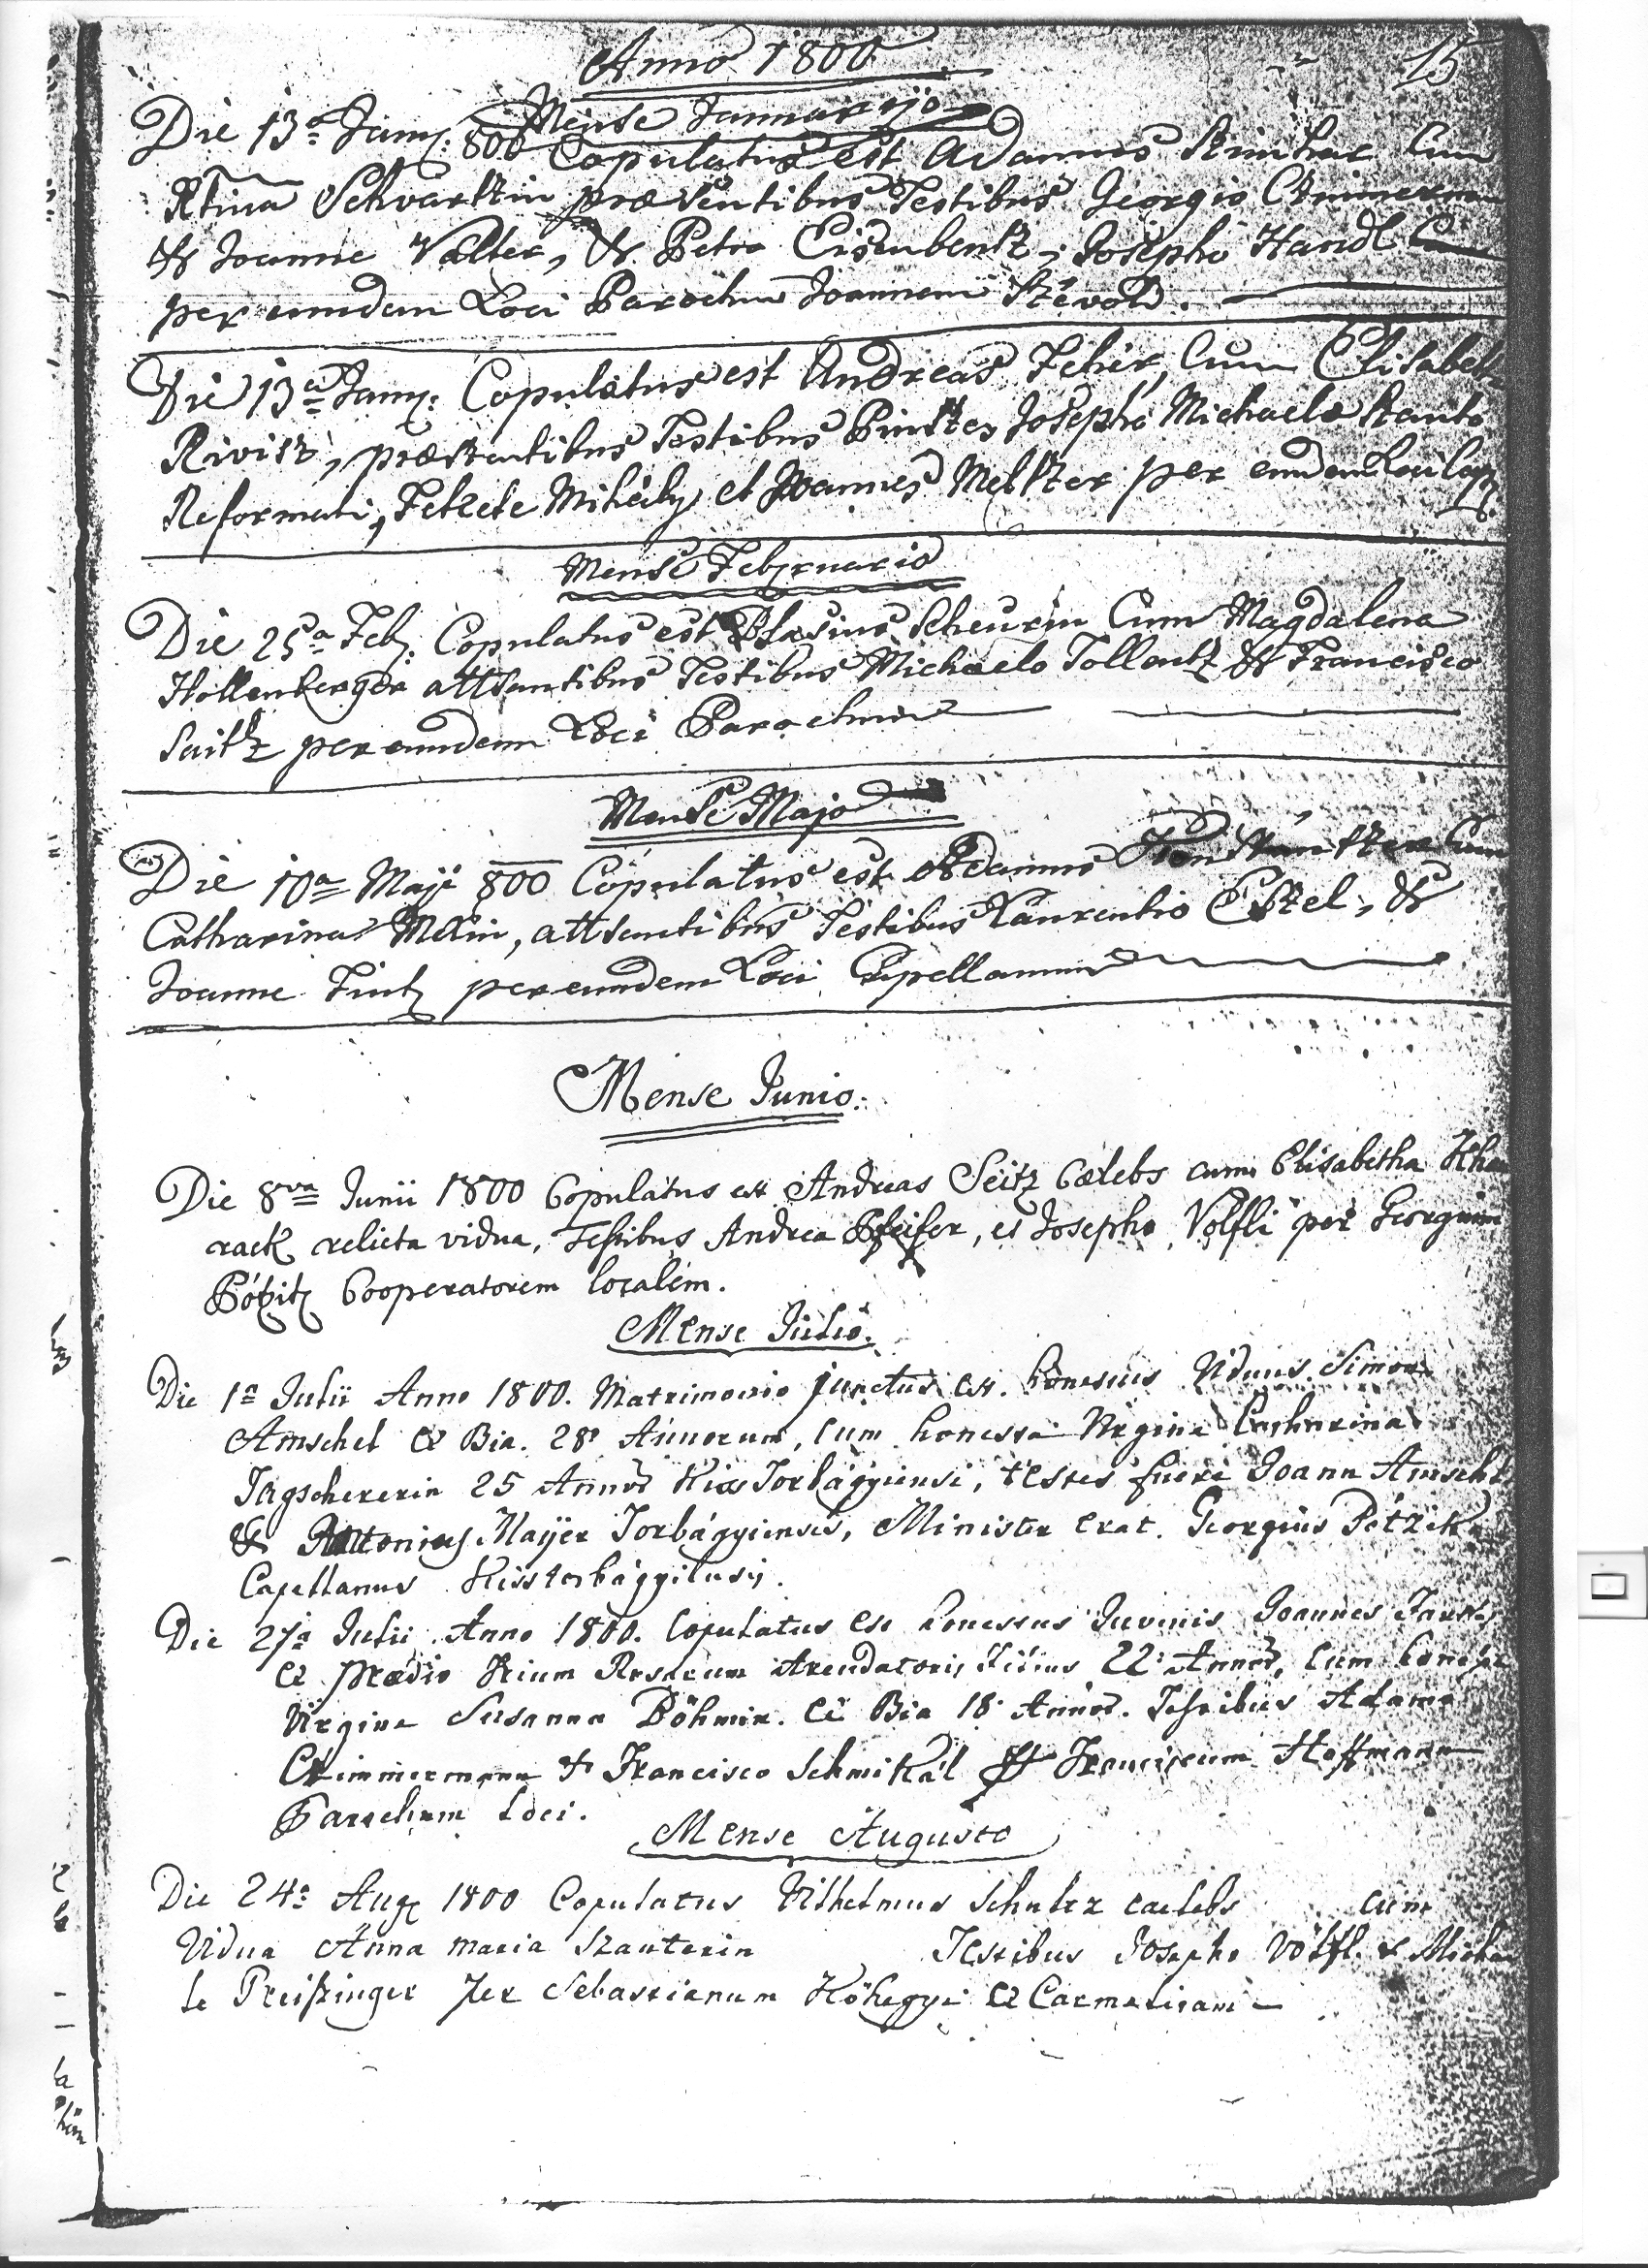 Anno 1800
15
Mense Januarijo
Die 13a Janu: 800 Copulatus est Adamus Cum
Schvarktzin præsentibus Testibus Georgio
& Joanne Valter, & Petro Eisenbentz, Josepho Handl
per eundem Loci Parochum Joannem
Die 13a Janu: Copulatus est Andreas Fehér, Cum Elisabeth
præsentibus Testibus Josepho Michaele
Reformati, Fekete Mihály et Joannes Meltzer per eundem Loci Cap.
Mense Februario
Die 25a Feb: Copulatus est Blasius Scheurin Cum Magdalena
Hollenberger attsantibus Testibus Michaelo & Francisco
Saitz per eundem Loci Parochum
Mense Majo
Die 10a Maji 800 Copulatus est Adamus Cum
Catharina attsantibus Testibus Laurentio &
Joanne per eundem Loci Capellanum
Mense Junio.
Die 8va Junii 1800 Copulatus est Andreas Seitz Cælebs cum Elisabetha Kha
rack relicta vidua, Testibus Andrea Pfeifer, et Josepho Volfli per Georgium
Cooperatorem localem.
Mense Julio.
Die 1a Julii Anno 1800. Matrimonio junctus est. honestus Viduus. Simon
Amschel ex Bia. 28. Annorum, Cum honesta Virgine Catharina
Jagschererin 25 Annor Kis Torbágyiensi, testes fuere Joann Amschl
& Antonius Mayer Torbágyiensis, Minister erat. Georgius
Capellanus Kisstorbágyiensis.
Die 27a Julii Anno 1800. Copulatus est honestus Juvenis Joannes
ex prædio Arendatoris filius 22. Annor, Cum honesta
Virgine Susanna Böhmin. ex Bia 18. Annor. Testibus Adamo
& Francisco Schmikál Franciscum Hoffmann
Parochum Loci.
Mense Augusto
Die 24a Aug 1800 Copulatus Vilhelmus Schultz caelebs cum
Vidua Anna Maria Szauterin Testibus Josepho Völfl. & Micha
le Preiszinger per Sebastianum Kőhegyi ex